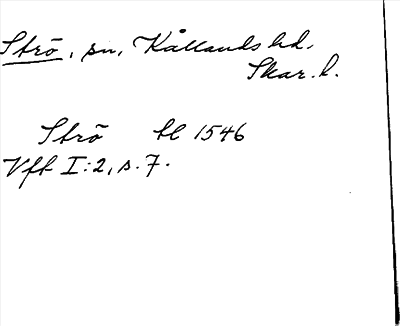 Strö, sn, Kållands hd.
Skar. l.
Strö tl 1546
Vft I:2, s. 7.